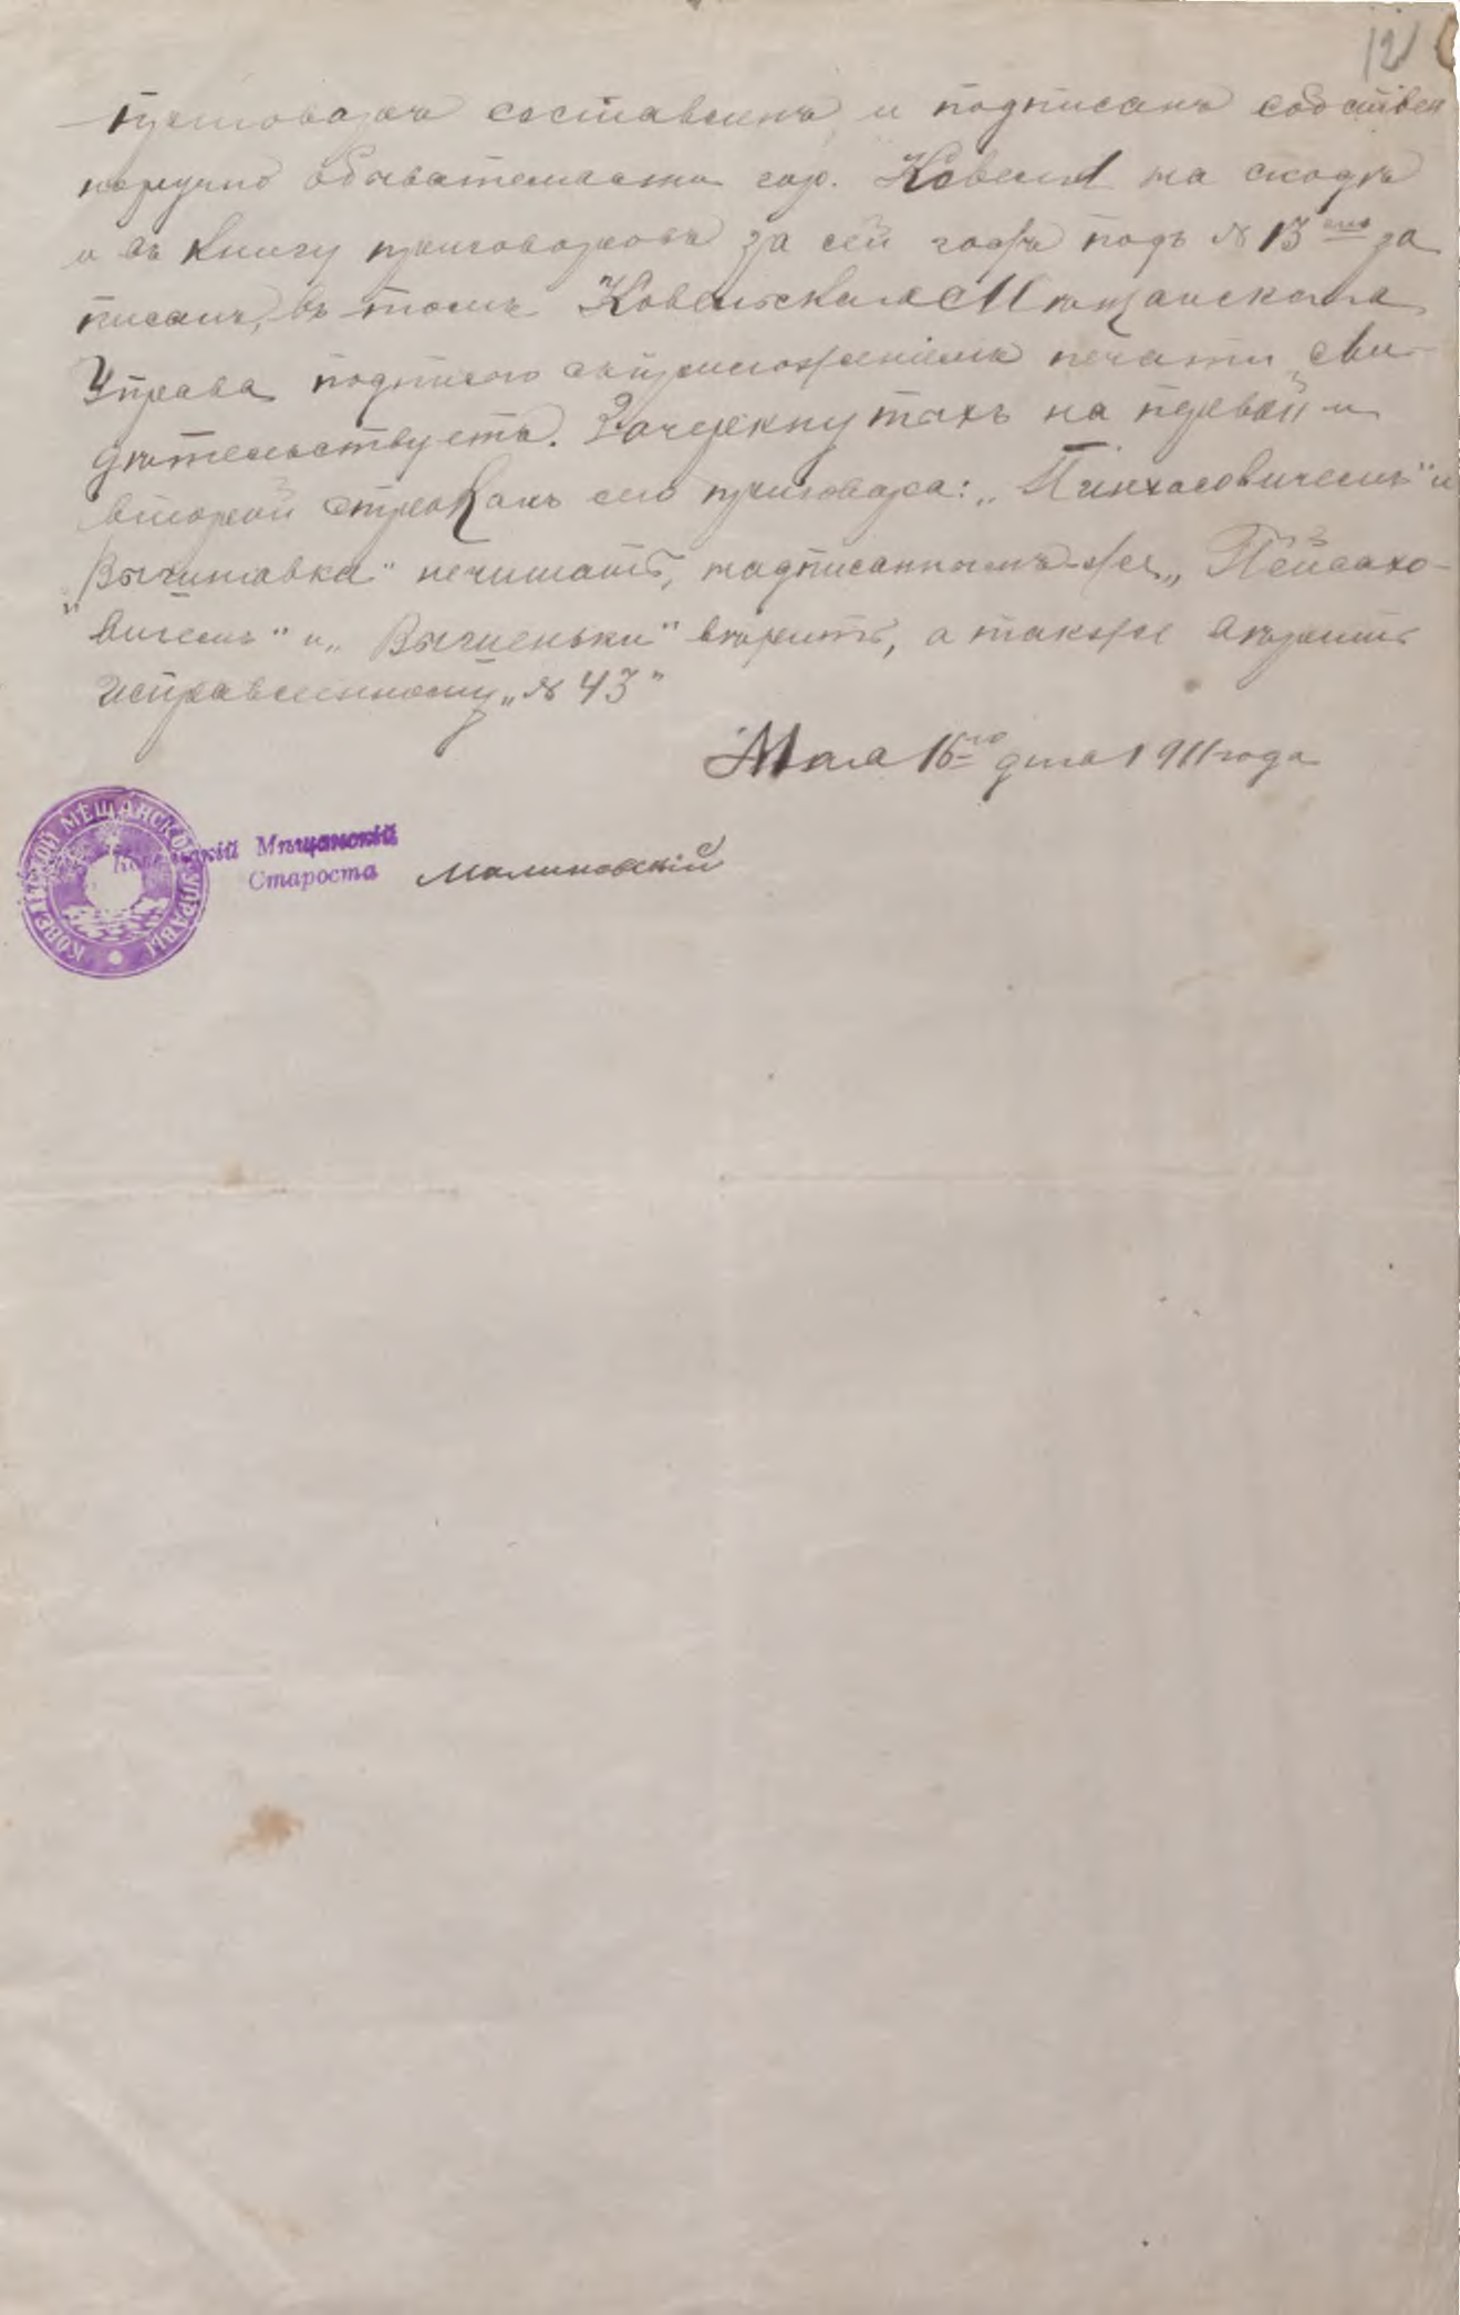 12
приговоръ составленъ и подписанъ собствен
норучно обывателями гор. Ковеля на сходѣ
и въ книгу приговоровъ за сей годъ подъ № 13 за
писанъ, въ томъ Ковельская Мѣщанская
Управа подписью съ приложеніемъ печати сви-
дѣтельствуетъ. Зачеркнутахъ на первой и
второй строкахъ сего приговора: „Пинхасовичемъ" и
„Вычинавка" нечитать, надписаннымъ-же „Пейсахо-
вичемъ" и „Вычиеньки" вѣрить, а также вѣрить
исправленному „№ 43"
Мая 16го дня 1911 года
КОВЕЛЬСКОЙ МѢЩАНСКОЙ УПРАВЫ
Ковельскій Мѣщанскій
Староста Малиновскій